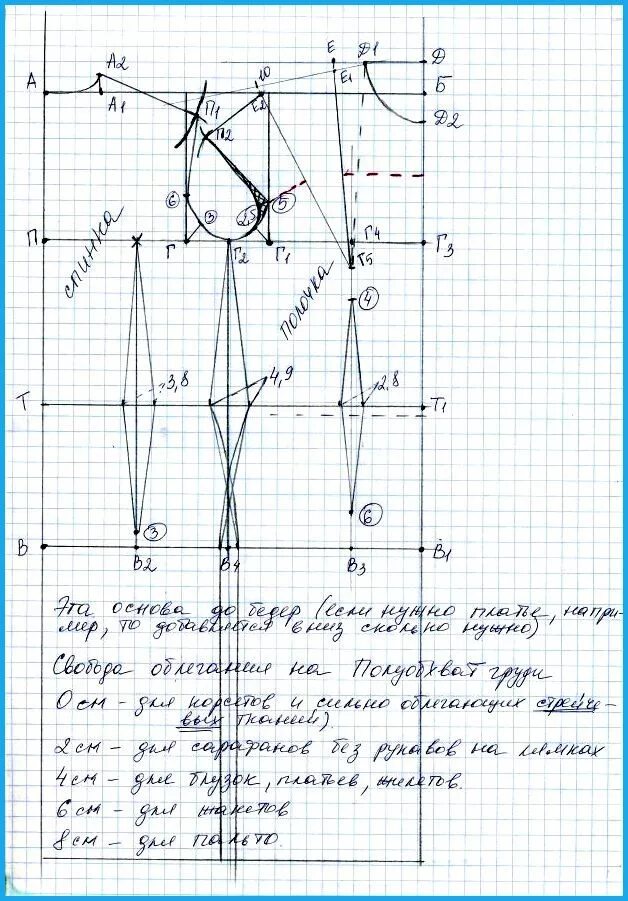 А2
Е
Д1
Д
А
А1
10
Е1
Б
П1
Е2
Д2
П2
6
3
2,5
5
П
Г
Г2
Г1
Г4
Г3
спинка
полочка
Г5
4
3,8
4,9
2,8
Т
Т1
6
3
В
В2
В4
В3
В1
Эта основа до бедер (если нужно платье, напри-
мер, то добавляется вниз сколько нужно)
Свобода облегания на Полуобхват груди
0 см - для корсетов и сильно облегающих стрейче-
вых тканей).
2 см - для сарафанов без рукавов на лямках
4 см - для блузок, платьев, жилетов.
6 см - для жакетов
8 см - для пальто.